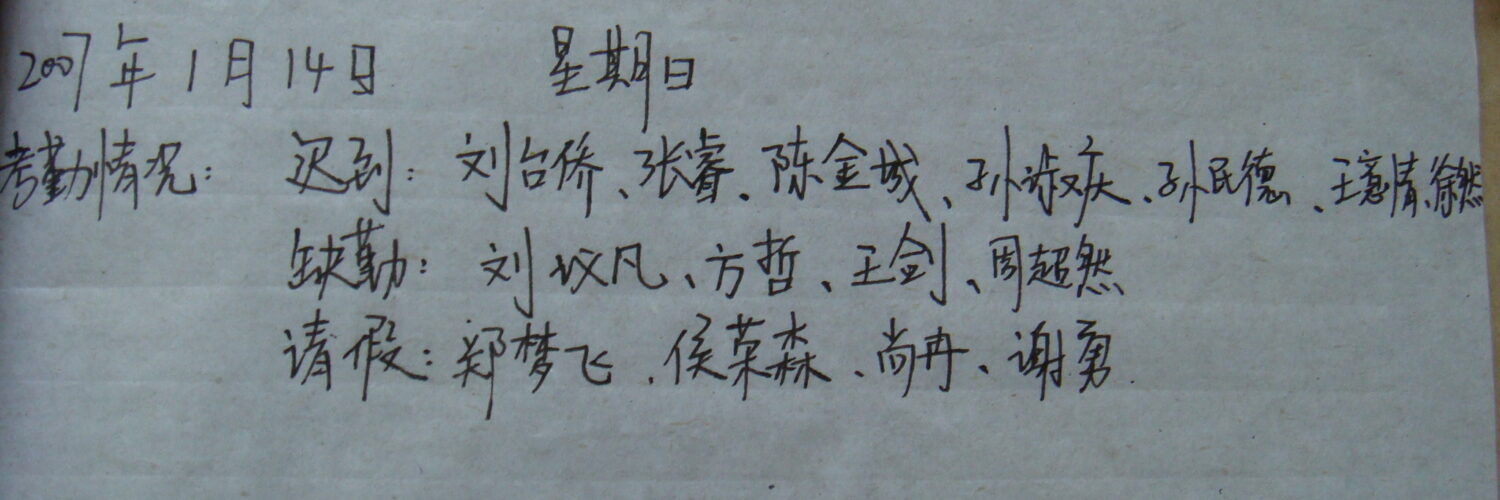 2007年1月14日 星期日
考勤情况: 迟到: 刘台侨、张睿、陈金城、孙淑庆、孙民德、王意情、徐然
缺勤: 刘汶凡、方哲、王剑、周超然
请假: 郑梦飞、侯荣森、尚冉、谢勇